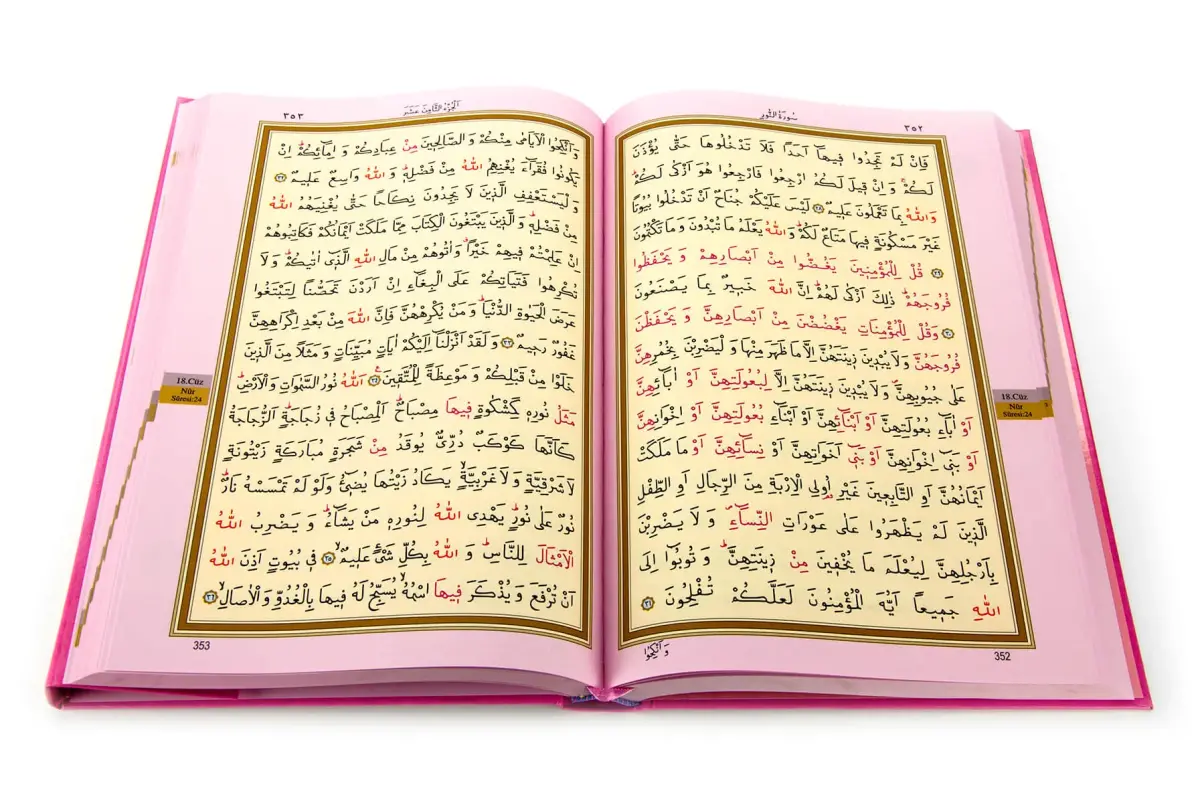 ٣٥٢
سُورَةُ النُّورِ
فَاِنْ لَمْ تَجِدُوا فٖيهَٓا اَحَدًا فَلَا تَدْخُلُوهَا حَتّٰى يُؤْذَنَ
لَكُمْۚ وَاِنْ قٖيلَ لَكُمُ ارْجِعُوا فَارْجِعُوا هُوَ اَزْكٰى لَكُمْؕ
وَاللّٰهُ بِمَا تَعْمَلُونَ عَلٖيمٌ ﴿٢٨﴾ لَيْسَ عَلَيْكُمْ جُنَاحٌ اَنْ تَدْخُلُوا بُيُوتًا
غَيْرَ مَسْكُونَةٍ فٖيهَا مَتَاعٌ لَكُمْؕ وَاللّٰهُ يَعْلَمُ مَا تُبْدُونَ وَمَا تَكْتُمُونَ
﴿٢٩﴾ قُلْ لِلْمُؤْمِنٖينَ يَغُضُّوا مِنْ اَبْصَارِهِمْ وَيَحْفَظُوا
فُرُوجَهُمْؕ ذٰلِكَ اَزْكٰى لَهُمْؕ اِنَّ اللّٰهَ خَبٖيرٌ بِمَا يَصْنَعُونَ
﴿٣٠﴾ وَقُلْ لِلْمُؤْمِنَاتِ يَغْضُضْنَ مِنْ اَبْصَارِهِنَّ وَيَحْفَظْنَ
فُرُوجَهُنَّ وَلَا يُبْدٖينَ زٖينَتَهُنَّ اِلَّا مَا ظَهَرَ مِنْهَا وَلْيَضْرِبْنَ بِخُمُرِهِنَّ
عَلٰى جُيُوبِهِنَّؕ وَلَا يُبْدٖينَ زٖينَتَهُنَّ اِلَّا لِبُعُولَتِهِنَّ اَوْ اٰبَٓائِهِنَّ
اَوْ اٰبَٓاءِ بُعُولَتِهِنَّ اَوْ اَبْنَٓائِهِنَّ اَوْ اَبْنَٓاءِ بُعُولَتِهِنَّ اَوْ اِخْوَانِهِنَّ
اَوْ بَنٖٓى اِخْوَانِهِنَّ اَوْ بَنٖٓى اَخَوَاتِهِنَّ اَوْ نِسَٓائِهِنَّ اَوْ مَا مَلَكَتْ
اَيْمَانُهُنَّ اَوِ التَّابِعٖينَ غَيْرِ اُولِى الْاِرْبَةِ مِنَ الرِّجَالِ اَوِ الطِّفْلِ
الَّذٖينَ لَمْ يَظْهَرُوا عَلٰى عَوْرَاتِ النِّسَٓاءِؕ وَلَا يَضْرِبْنَ
بِاَرْجُلِهِنَّ لِيُعْلَمَ مَا يُخْفٖينَ مِنْ زٖينَتِهِنَّؕ وَتُوبُٓوا اِلَى
اللّٰهِ جَمٖيعًا اَيُّهَ الْمُؤْمِنُونَ لَعَلَّكُمْ تُفْلِحُونَ ﴿٣١﴾
وَاَنْكِحُوا
352
18.Cüz
Nûr
Sûresi:24
اَلْجُزْءُ الثَّامِنَ عَشَرَ
٣٥٣
وَاَنْكِحُوا الْاَيَامٰى مِنْكُمْ وَالصَّالِحٖينَ مِنْ عِبَادِكُمْ وَاِمَٓائِكُمْؕ اِنْ
يَكُونُوا فُقَرَٓاءَ يُغْنِهِمُ اللّٰهُ مِنْ فَضْلِهٖؕ وَاللّٰهُ وَاسِعٌ عَلٖيمٌ ﴿٣٢﴾
وَلْيَسْتَعْفِفِ الَّذٖينَ لَا يَجِدُونَ نِكَاحًا حَتّٰى يُغْنِيَهُمُ اللّٰهُ
مِنْ فَضْلِهٖؕ وَالَّذٖينَ يَبْتَغُونَ الْكِتَابَ مِمَّا مَلَكَتْ اَيْمَانُكُمْ فَكَاتِبُوهُمْ
اِنْ عَلِمْتُمْ فٖيهِمْ خَيْرًاۗ وَاٰتُوهُمْ مِنْ مَالِ اللّٰهِ الَّذٖٓى اٰتٰيكُمْؕ وَلَا
تُكْرِهُوا فَتَيَاتِكُمْ عَلَى الْبِغَٓاءِ اِنْ اَرَدْنَ تَحَصُّنًا لِتَبْتَغُوا
عَرَضَ الْحَيٰوةِ الدُّنْيَاؕ وَمَنْ يُكْرِهْهُنَّ فَاِنَّ اللّٰهَ مِنْ بَعْدِ اِكْرَاهِهِنَّ
غَفُورٌ رَحٖيمٌ ﴿٣٣﴾ وَلَقَدْ اَنْزَلْنَٓا اِلَيْكُمْ اٰيَاتٍ مُبَيِّنَاتٍ وَمَثَلًا مِنَ الَّذٖينَ
خَلَوْا مِنْ قَبْلِكُمْ وَمَوْعِظَةً لِلْمُتَّقٖينَ ﴿٣٤﴾ اَللّٰهُ نُورُ السَّمٰوَاتِ وَالْاَرْضِؕ
مَثَلُ نُورِهٖ كَمِشْكٰوةٍ فٖيهَا مِصْبَاحٌؕ اَلْمِصْبَاحُ فٖى زُجَاجَةٍؕ اَلزُّجَاجَةُ
كَاَنَّهَا كَوْكَبٌ دُرِّىٌّ يُوقَدُ مِنْ شَجَرَةٍ مُبَارَكَةٍ زَيْتُونَةٍ
لَا شَرْقِيَّةٍ وَلَا غَرْبِيَّةٍۙ يَكَادُ زَيْتُهَا يُضٖٓىءُ وَلَوْ لَمْ تَمْسَسْهُ نَارٌؕ
نُورٌ عَلٰى نُورٍؕ يَهْدِى اللّٰهُ لِنُورِهٖ مَنْ يَشَٓاءُؕ وَيَضْرِبُ اللّٰهُ
الْاَمْثَالَ لِلنَّاسِؕ وَاللّٰهُ بِكُلِّ شَىْءٍ عَلٖيمٌۙ ﴿٣٥﴾ فٖى بُيُوتٍ اَذِنَ اللّٰهُ
اَنْ تُرْفَعَ وَيُذْكَرَ فٖيهَا اسْمُهُۙ يُسَبِّحُ لَهُ فٖيهَا بِالْغُدُوِّ وَالْاٰصَالِۙ ﴿٣٦﴾
353
18.Cüz
Nûr
Sûresi:24